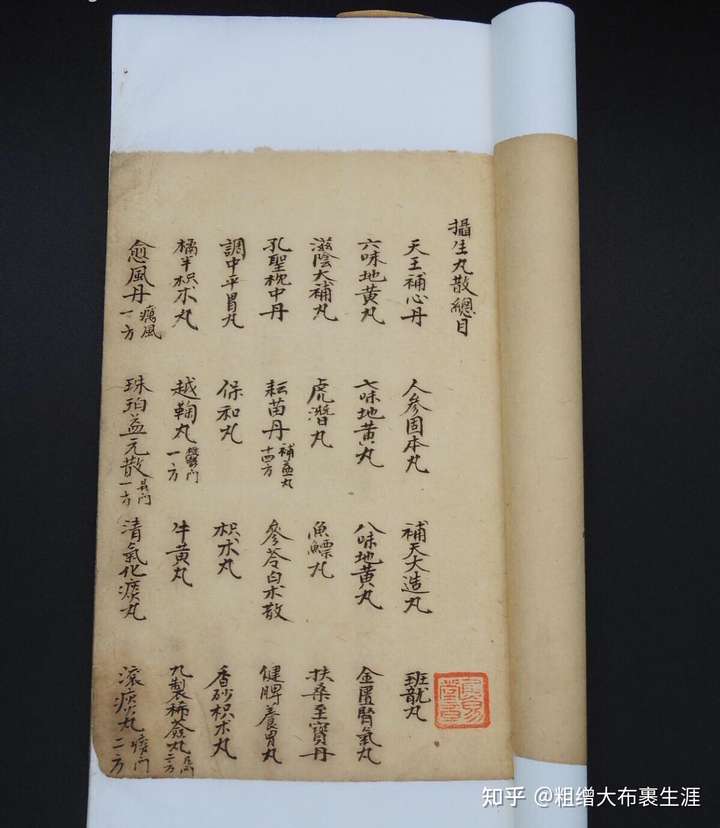 攝生丸散總目
天王補心丹 人參固本丸 補天大造丸 班龍丸
六味地黃丸 七味地黃丸 八味地黃丸 金匱腎氣丸
滋陰大補丸 虎潛丸 魚鰾丸 扶桑至寶丹
孔聖枕中丹 耘苗丹 補益丸十四方 參苓白术散 健脾養胃丸
調中平胃丸 保和丸 枳术丸 香砂枳术丸
橘半枳术丸 越鞠丸 鬱門一方 牛黃丸 九製稀薟丸 二方
愈風丹 癘風一方 珠珀益元散 一方 清氣化痰丸 滾痰丸 痰門二方
知乎 @粗缯大布裹生涯